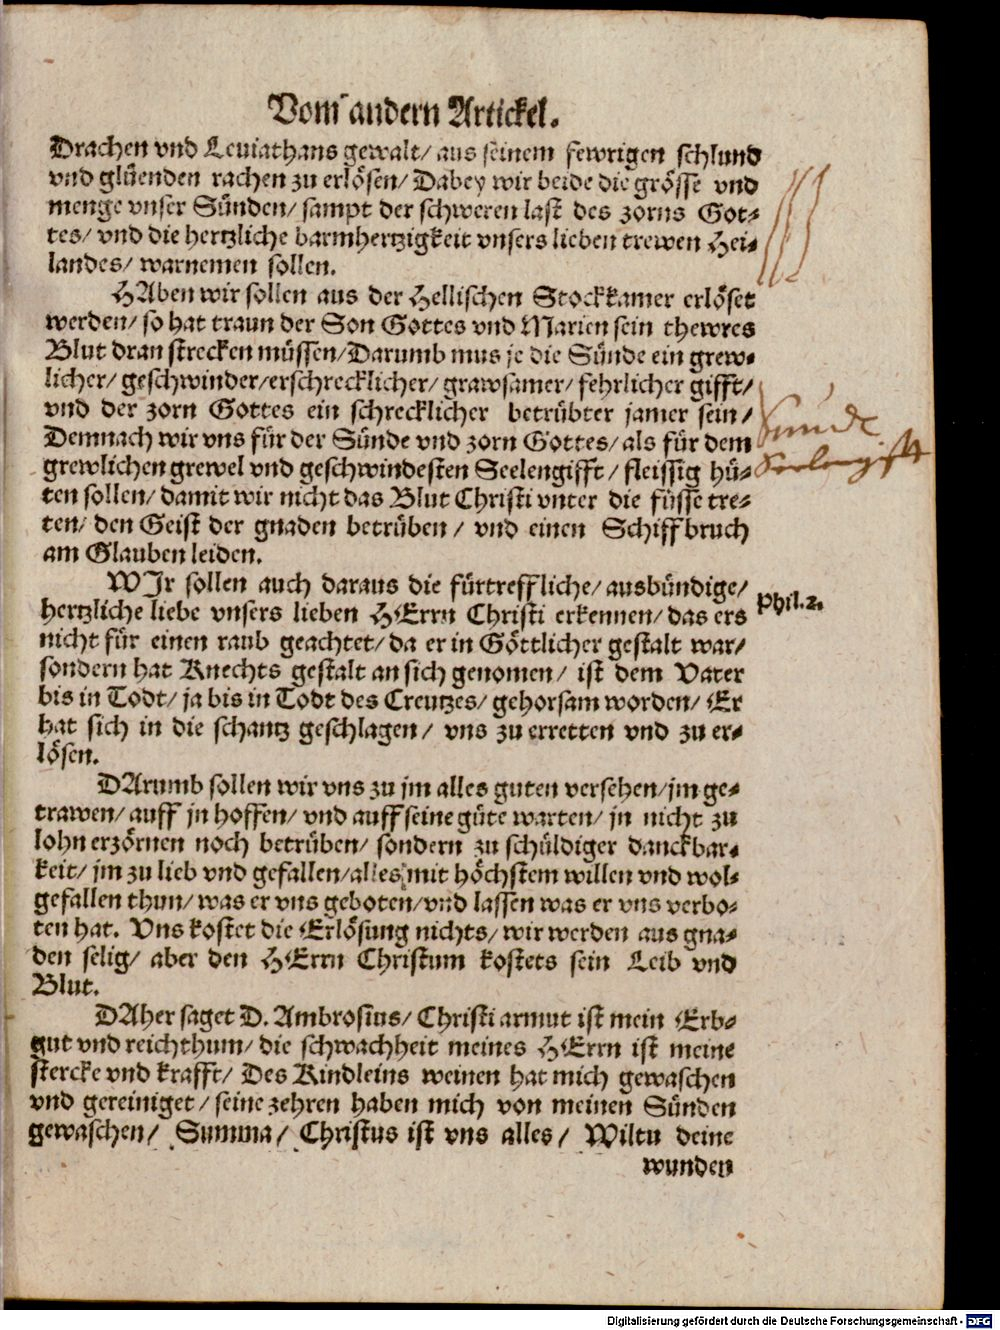 Vom andern Artickel.
Drachen vnd Leuiathans gewalt/ aus seinem fewrigen schlund
vnd glüenden rachen zu erlösen/ Dabey wir beide die grösse vnd
menge vnser Sünden/ sampt der schweren last des zorns Got-
tes/ vnd die hertzliche barmhertzigkeit vnsers lieben trewen Hei-
landes/ warnemen sollen.
HAben wir sollen aus der Hellischen Stockkamer erlöset
werden/ so hat traun der Son Gottes vnd Marien sein thewres
Blut dran strecken müssen/ Darumb mus je die Sünde ein grew-
licher/ geschwinder/ erschrecklicher/ grawsamer/ fehrlicher gifft/
vnd der zorn Gottes ein schrecklicher betrübter jamer sein/
Demnach wir vns für der Sünde vnd zorn Gottes/ als für dem
grewlichen grewel vnd geschwindesten Seelengifft/ fleissig hü-
ten sollen/ damit wir nicht das Blut Christi vnter die füsse tre-
ten/ den Geist der gnaden betrüben/ vnd einen Schiffbruch
am Glauben leiden.
Sünde
Seelengifft
WIr sollen auch daraus die fürtreffliche/ ausbündige/
hertzliche liebe vnsers lieben HErrn Christi erkennen/ das ers
nicht für einen raub geachtet/ da er in Göttlicher gestalt war/
sondern hat Knechts gestalt an sich genomen/ ist dem Vater
bis in Todt/ ja bis in Todt des Creutzes/ gehorsam worden/ Er
hat sich in die schantz geschlagen/ vns zu erretten vnd zu er-
lösen.
Phil. 2.
DArumb sollen wir vns zu jm alles guten versehen/ jm ge-
trawen/ auff jn hoffen/ vnd auff seine güte warten/ jn nicht zu
lohn erzörnen noch betrüben/ sondern zu schüldiger danckbar-
keit/ jm zu lieb vnd gefallen/ alles mit höchstem willen vnd wol-
gefallen thun/ was er vns geboten/ vnd lassen was er vns verbo-
ten hat. Vns kostet die Erlösung nichts/ wir werden aus gna-
den selig/ aber den HErrn Christum kostets sein Leib vnd
Blut.
DAher saget D. Ambrosius/ Christi armut ist mein Erb-
gut vnd reichthum/ die schwachheit meines HErrn ist meine
stercke vnd krafft/ Des Kindleins weinen hat mich gewaschen
vnd gereiniget/ seine zehren haben mich von meinen Sünden
gewaschen/ Summa/ Christus ist vns alles/ Wiltu deine
wunden
Digitalisierung gefördert durch die Deutsche Forschungsgemeinschaft - DFG